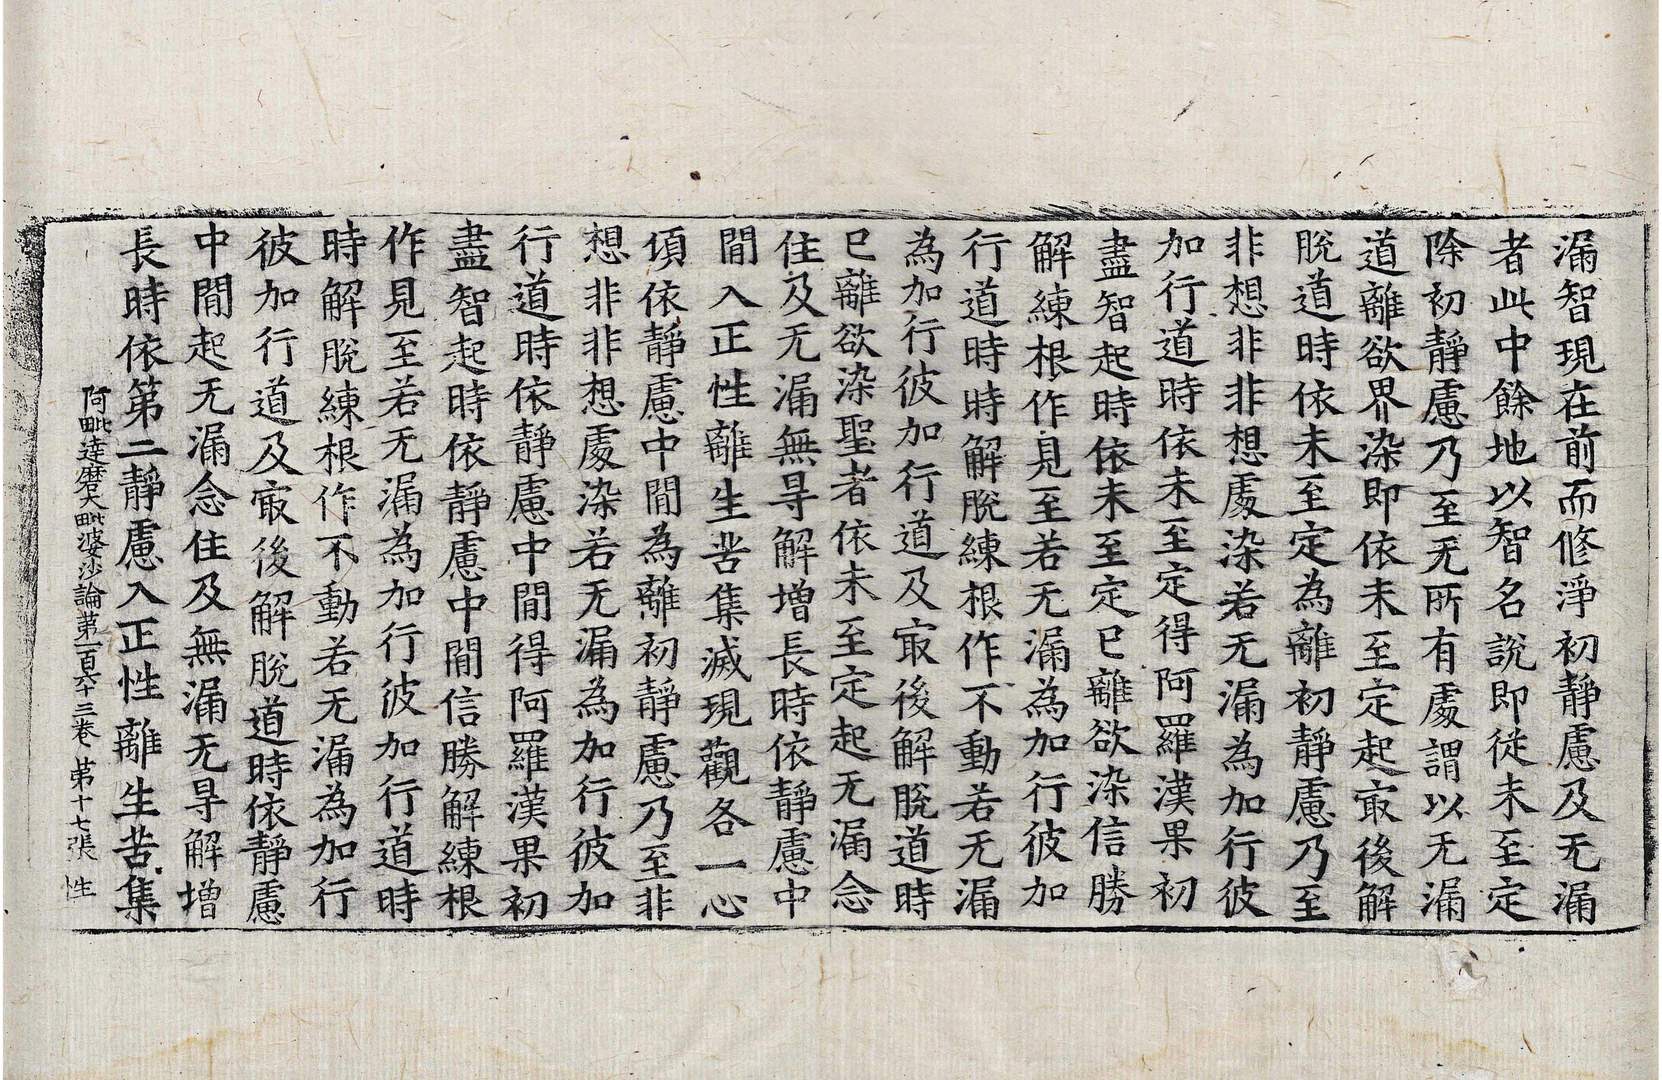 漏智現在前而修淨初靜慮及无漏
者此中餘地以智名說即從未至定
除初靜慮乃至无所有處謂以无漏
道離欲界染即依未至定起㝡後解
脫道時依未至定為離初靜慮乃至
非想非非想處染若无漏為加行彼
加行道時依未至定得阿羅漢果初
盡智起時依未至定已離欲染信勝
解練根作見至若无漏為加行彼加
行道時時解脫練根作不動若无漏
為加行彼加行道及㝡後解脫道時
已離欲染聖者依未至定起无漏念
住及无漏無㝵解增長時依靜慮中
閒入正性離生苦集滅現觀各一心
頃依靜慮中閒為離初靜慮乃至非
想非非想處染若无漏為加行彼加
行道時依靜慮中閒得阿羅漢果初
盡智起時依靜慮中閒信勝解練根
作見至若无漏為加行彼加行道時
時解脫練根作不動若无漏為加行
彼加行道及㝡後解脫道時依靜慮
中閒起无漏念住及無漏无㝵解增
長時依第二靜慮入正性離生苦集
阿毗達磨大毗婆沙論第一百六十三卷 第十七張 性